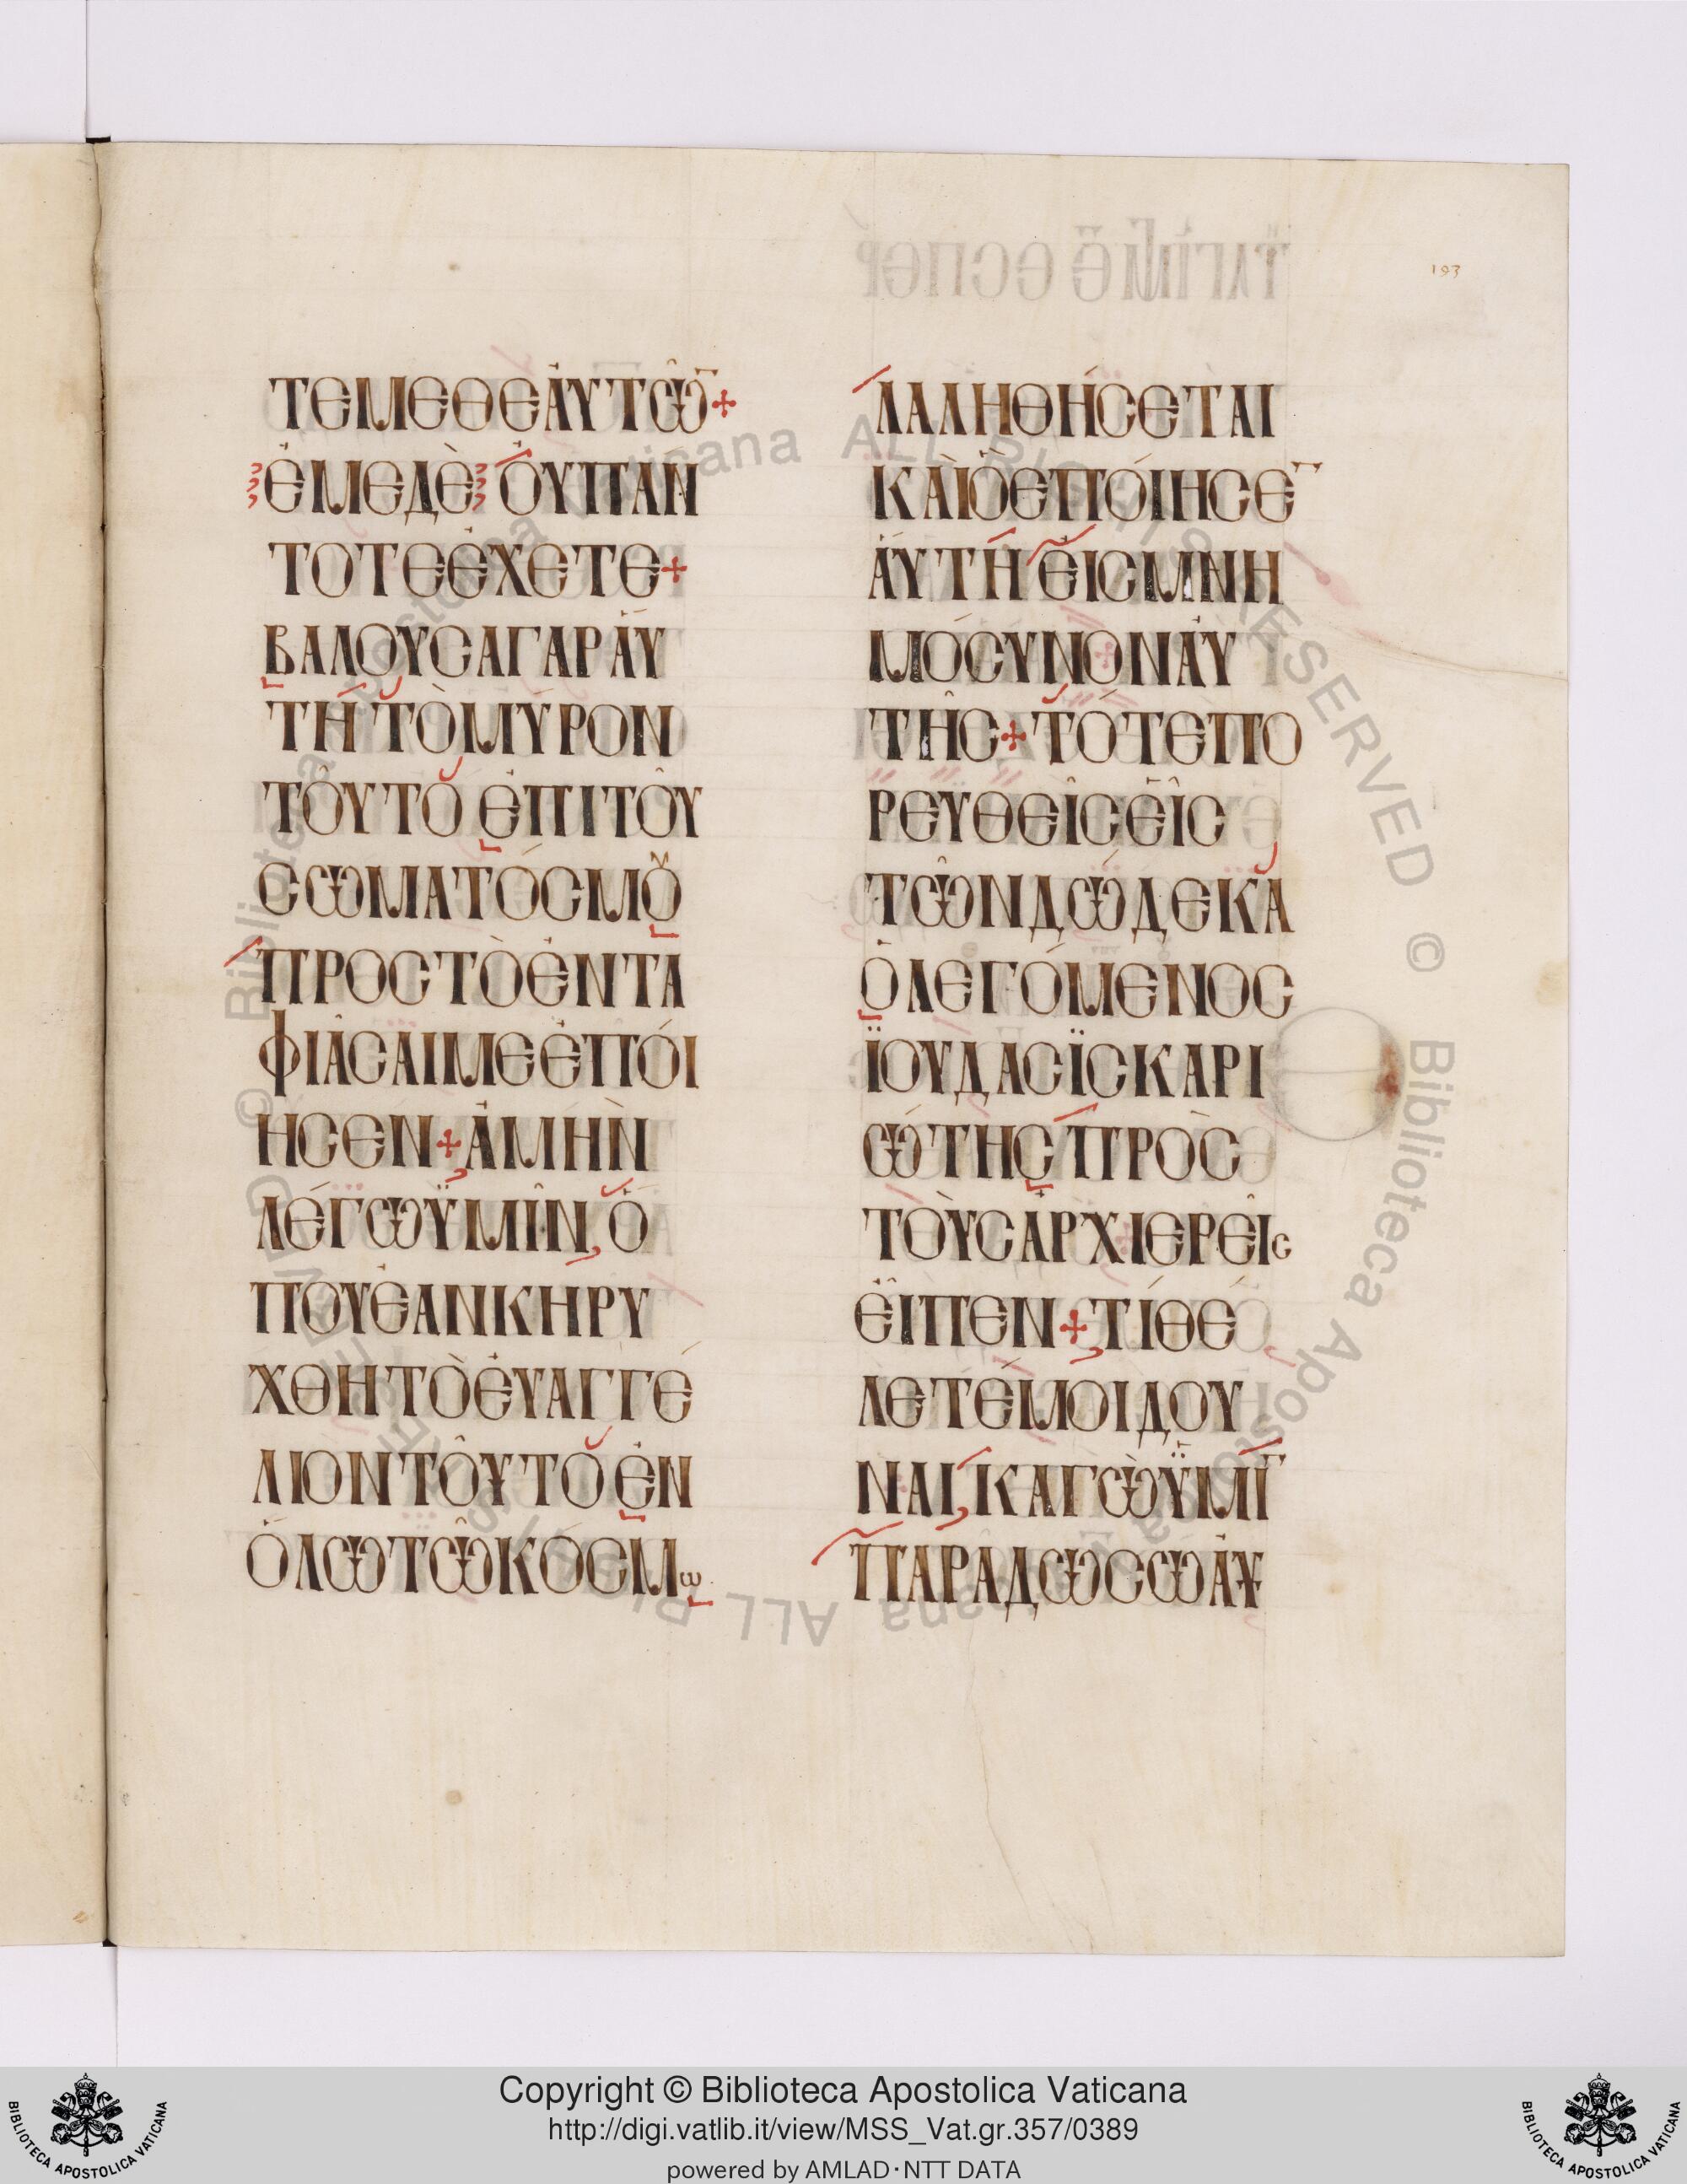 193
ΤΕΜΕΘΕἈΥΤΩ͂Ν+
ἘΜΕΔῈ ὈΥΠΑΝ
ΤΟΤΕἘΧΕΤΕ+
ΒΑΛΟΥΣΑΓΑΡἈΥ
ΤΗ ΤῸΜΎΡΟΝ
ΤΟΥΤΟ ἘΠΙΤΟΥ
ΣΩΜΑΤΌΣΜȢ
ΠΡΟΣΤῸἘΝΤΑ
ΦΙΆΣΑΙΜΕἘΠΌΙ
ΗΣΕΝ+ἈΜΗΝ
ΛΈΓΩΫΜΙΝ, Ὁ
ΠΟΥἘΑΝΚΗΡΥ
ΧΘΗΤῸἘΥΑΓΓΈ
ΛΙΟΝΤΟΥΤΟ ἘΝ
ὉΛΩΤΩΚΌΣΜω
ΛΑΛΗΘΉΣΕΤΑΙ
ΚΑῚὉἘΠΌΙΗΣΕ¯
ἈΥΤΗ ἘΙΣΜΝΗ
ΜΌΣΥΝΟΝἈΥ
ΤΗΣ+ΤΌΤΕΠΟ
ΡΕΥΘΕΙΣἘΙΣ
ΤΩΝΔΏΔΕΚΑ
ὉΛΕΓΌΜΕΝΟΣ
ΪΟΥΔΑΣΪΣΚΑΡΙ
ΏΤΗΣ ΠΡῸΣ
ΤΟῪΣἈΡΧΙΕΡΕΙς
ἘΙΠΕΝ+ΤΊΘΈ
ΛΕΤΈΜΟΙΔΟΥ
ΝΑΙ, ΚΑΓΩΫΜΙ¯
ΠΑΡΑΔΩΣΩἈΥ
Copyright © Biblioteca Apostolica Vaticana
http://digi.vatlib.it/view/MSS_Vat.gr.357/0389
powered by AMLAD·NTT DATA
BIBLIOTECA APOSTOLICA VATICANA
BIBLIOTECA APOSTOLICA VATICANA